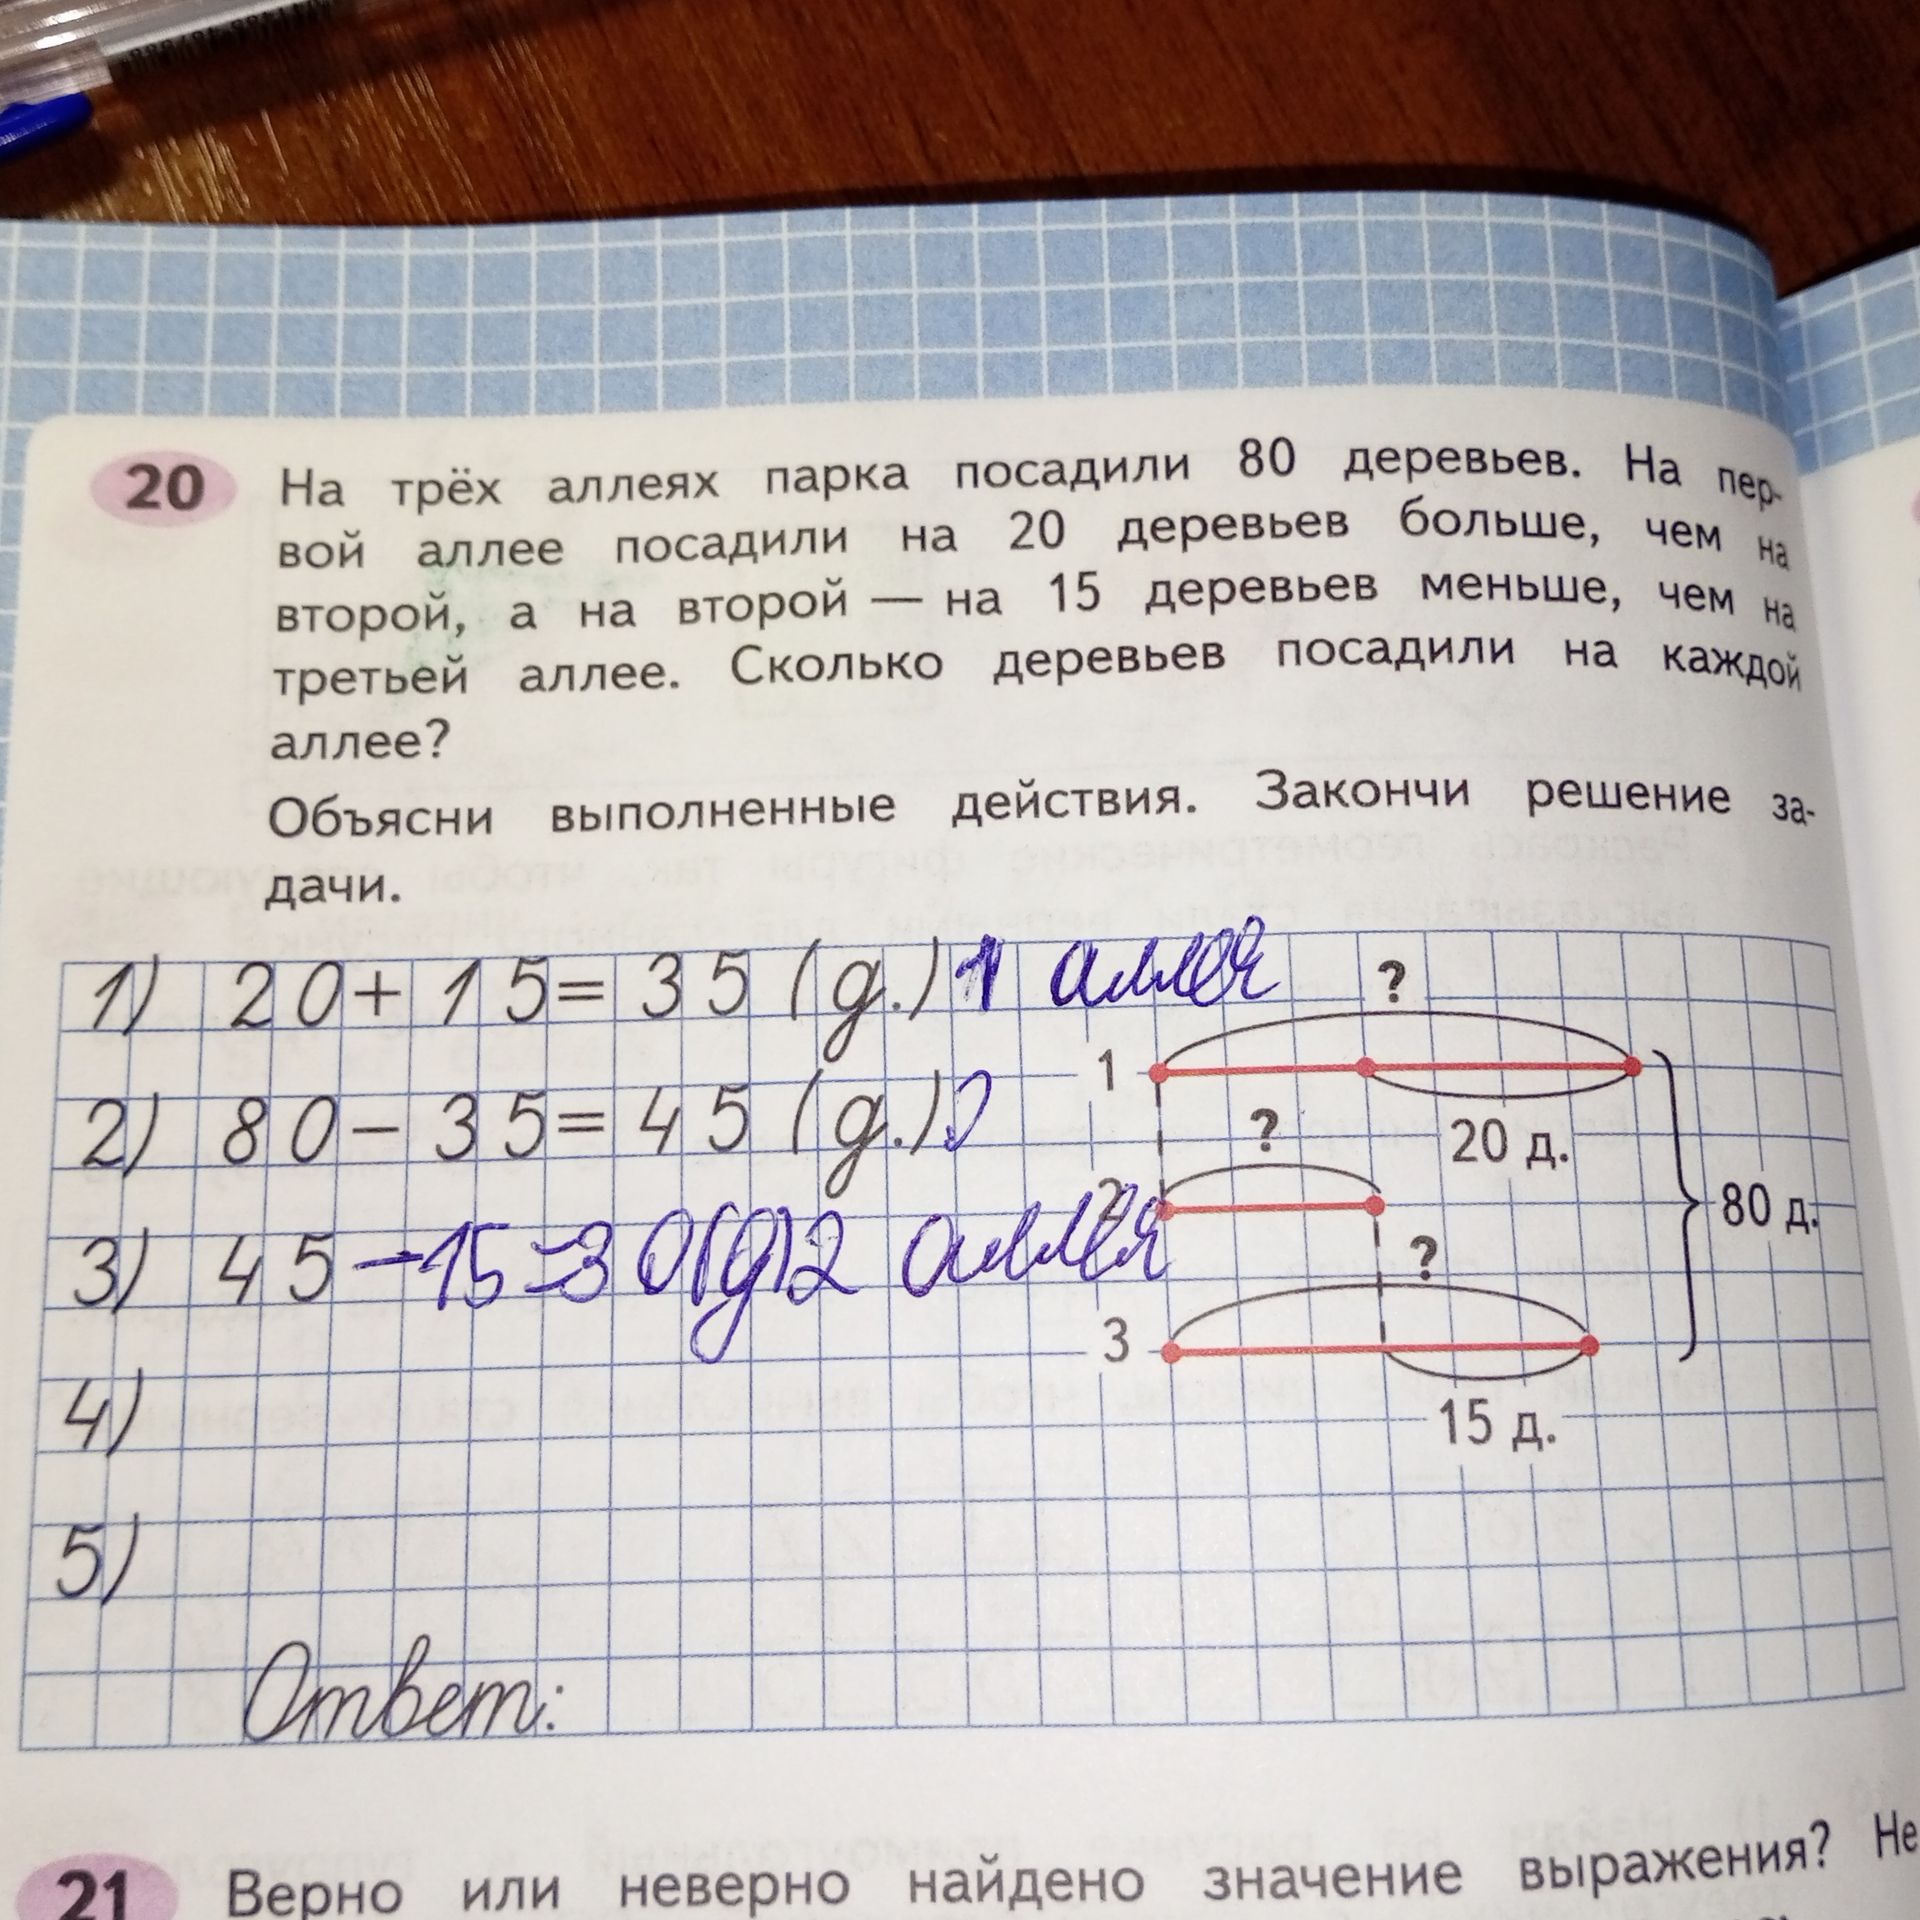 20 На трёх аллеях парка посадили 80 деревьев. На пер-
вой аллее посадили на 20 деревьев больше, чем на
второй, а на второй — на 15 деревьев меньше, чем на
третьей аллее. Сколько деревьев посадили на каждой
аллее?
Объясни выполненные действия. Закончи решение за-
дачи.
1) 20+15=35 (д.) 1 аллея
2) 80-35=45 (д.)
3) 45-15=30(д)2 аллея
4)
5)
Ответ:
?
1
20 д.
?
2
80 д.
?
3
15 д.
21 Верно или неверно найдено значение выражения? Не